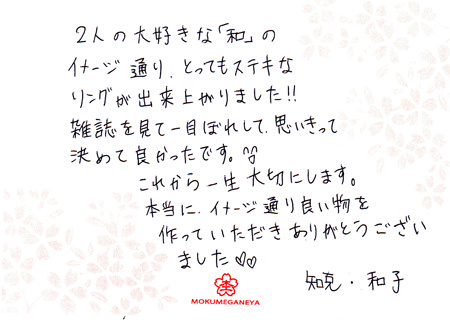 2人の大好きな「和」の
イメージ通り、とってもステキな
リングが出来上がりました!!
雑誌を見て一目ぼれして、思いきって
決めて良かったです。
これから一生大切にします。
本当に、イメージ通り良い物を
作っていただきありがとうござい
ました♡♡
知克・和子
MOKUMEGANEYA